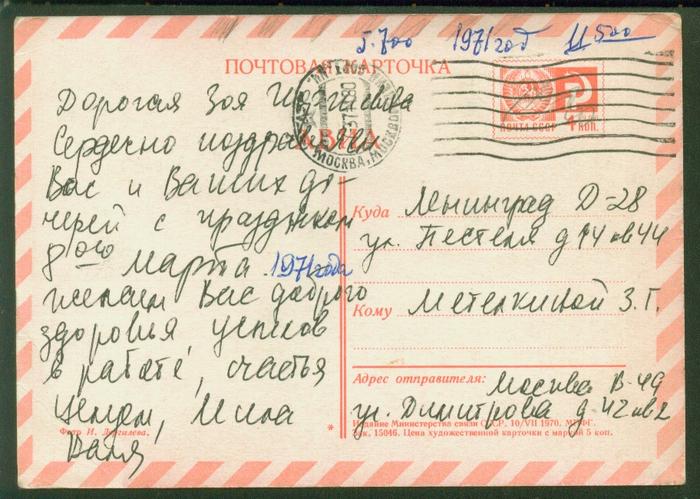 5.700 1971 год 11500
ПОЧТОВАЯ КАРТОЧКА
АВИА
МОСКВА, МОСКВА
ПОЧТА СССР КОП.
Дорогая Зоя
Сердечно поздравляем
Вас и Ваших до-
черей с праздником
8ого Марта 1971 года
желаем Вас доброго
здоровья, успехов
в работе, счастья
Целуем, Мила
Валя
Куда Ленинград Д-28
ул. Пестеля д 14 кв 44
Кому Метелкиной З. Г.
Адрес отправителя: Москва В-49
ул. Димитрова д-42 кв 2
Фото И. Дергилева.
*
Издание Министерства связи СССР. 10/VII 1970. МПФГ.
Зак. 15046. Цена художественной карточки с маркой 5 коп.